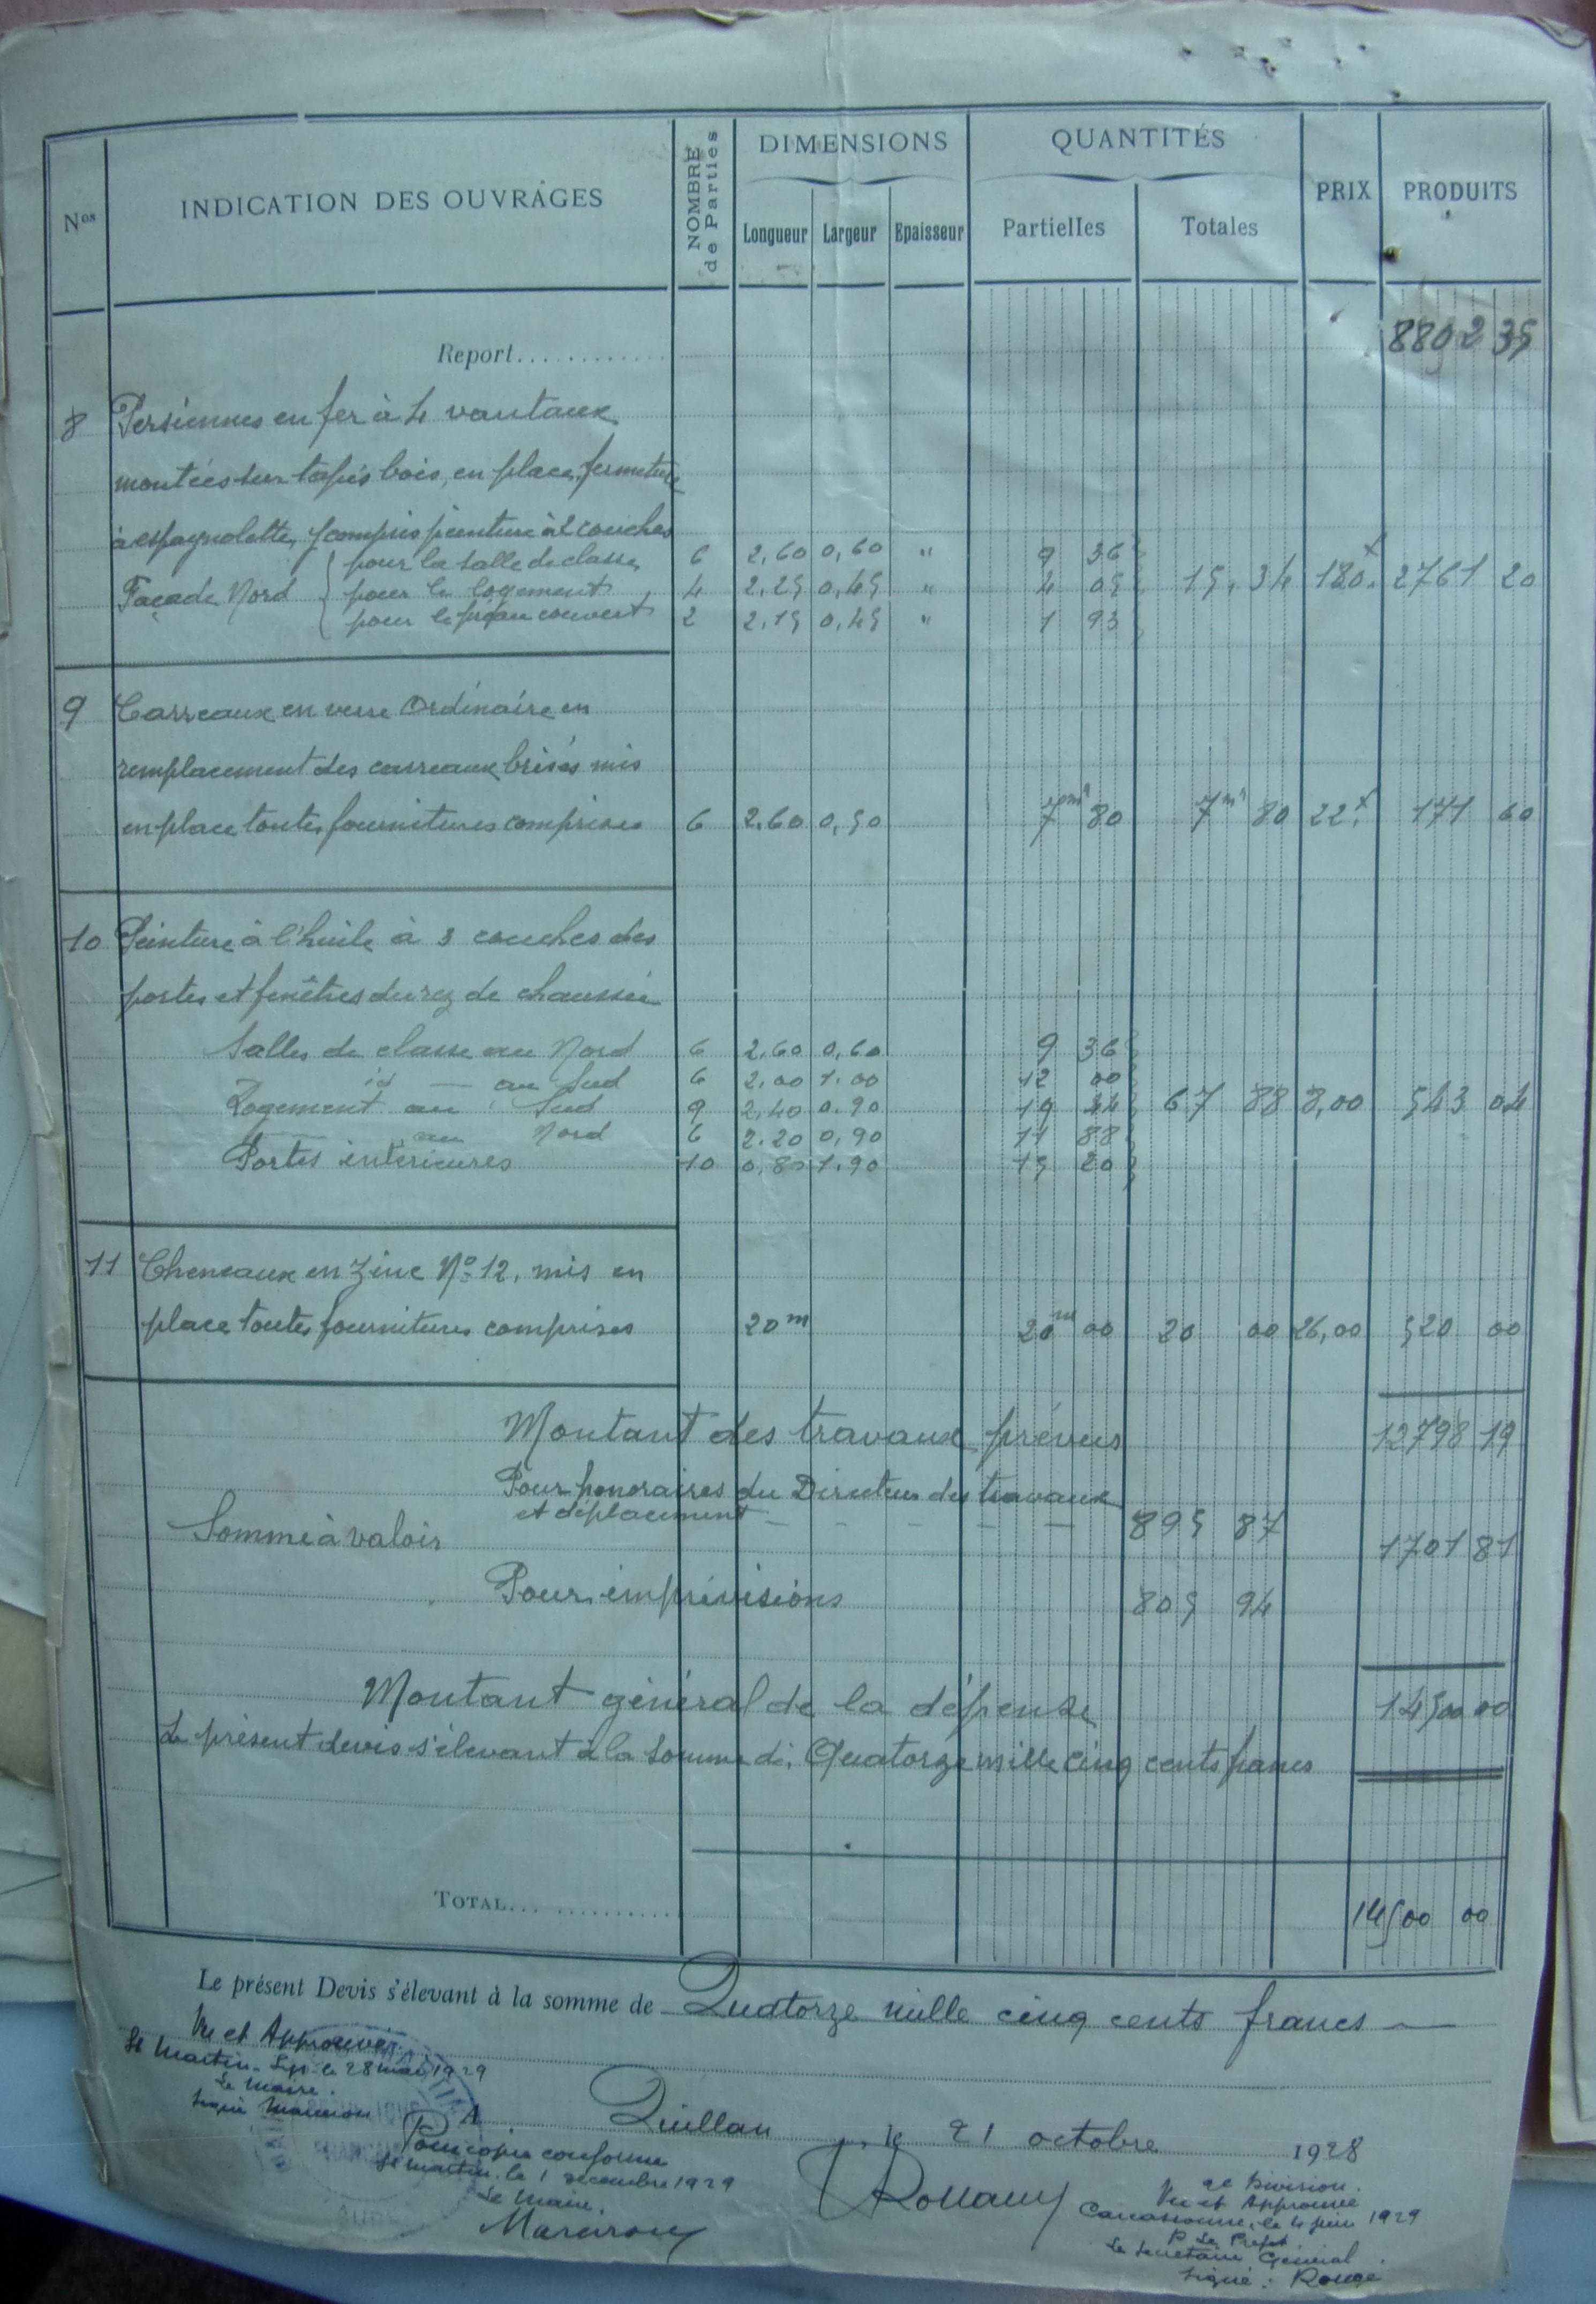 Nos INDICATION DES OUVRAGES NOMBRE de Parties DIMENSIONS QUANTITÉS PRIX PRODUITS
Longueur Largeur Epaisseur Partielles Totales
Report............ 8802 35
8 Persiennes en fer à 4 vantaux
montées sur tapés bois, en place, fermeture
à espagnolette, y compris peinture à 2 couches
pour la salle de classe 6 2,60 0,60 " 9 36
Façade Nord pour le logement 4 2,25 0,45 " 4 05 15,34 180f 2761 20
pour le préau couvert 2 2,15 0,45 " 1 93
9 Carreaux en verre Ordinaire en
remplacement des carreaux brisés mis
en place toutes fournitures comprises 6 2.60 0,50 7 80 7 80 22f 171 60
10 Peinture à l'huile à 3 couches des
portes et fenêtres du rez de chaussée
Salles de classe au Nord 6 2.60 0,60 9 36
id — au Sud 6 2,00 1.00 12 00
Logement au Sud 9 2,40 0.90 19 44 67 88 8,00 543 04
au Nord 6 2.20 0,90 11 88
Portes intérieures 10 0,80 1.90 15 20
11 Cheneaux en Zinc No 12, mis en
place toutes fournitures comprises 20m 20m 00 20 00 26,00 520 00
Montant des travaux prévus 12798 19
Pour honoraires du Directeur des travaux
et déplacement — — — — — 895 87
Somme à valoir 1701 81
Pour imprévisions 805 94
Montant général de la dépense 14500 00
Le présent devis s'élevant à la somme de: Quatorze mille cinq cents francs
TOTAL... .......... 14500 00
Le présent Devis s'élevant à la somme de Quatorze mille cinq cents francs —
Vu et Approuvé
St Martin-Lys le 28 mai 1929
Le Maire.
Signé
A Quillan, le 21 octobre 1928
Pour copie conforme
St Martin le 1 decembre 1929
Le Maire,
2e Division.
Vu et Approuvé
Carcassonne, le 4 juin 1929
P Le Préfet
Le Secrétaire Général
Signé: Rouge